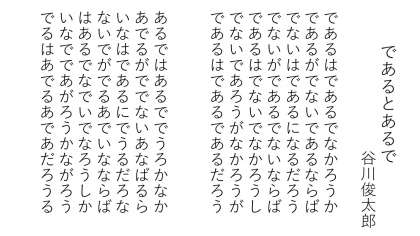 であるとあるで
谷川俊太郎
であるはであるでなかろうか
であるがでないであるならば
でないはであるになるだろう
でないがであるでないならば
であるはでないでなかろうし
でないであろうがなかろうが
であるはであるであるだろう
あるではあるででうろかなか
あでるがででないあなばるら
いなはであるにでうるだろな
ないでがでるあでいなならば
はあるでなでいでなろうしか
いなでであがろうかながろう
でるはあでるあであだろうる